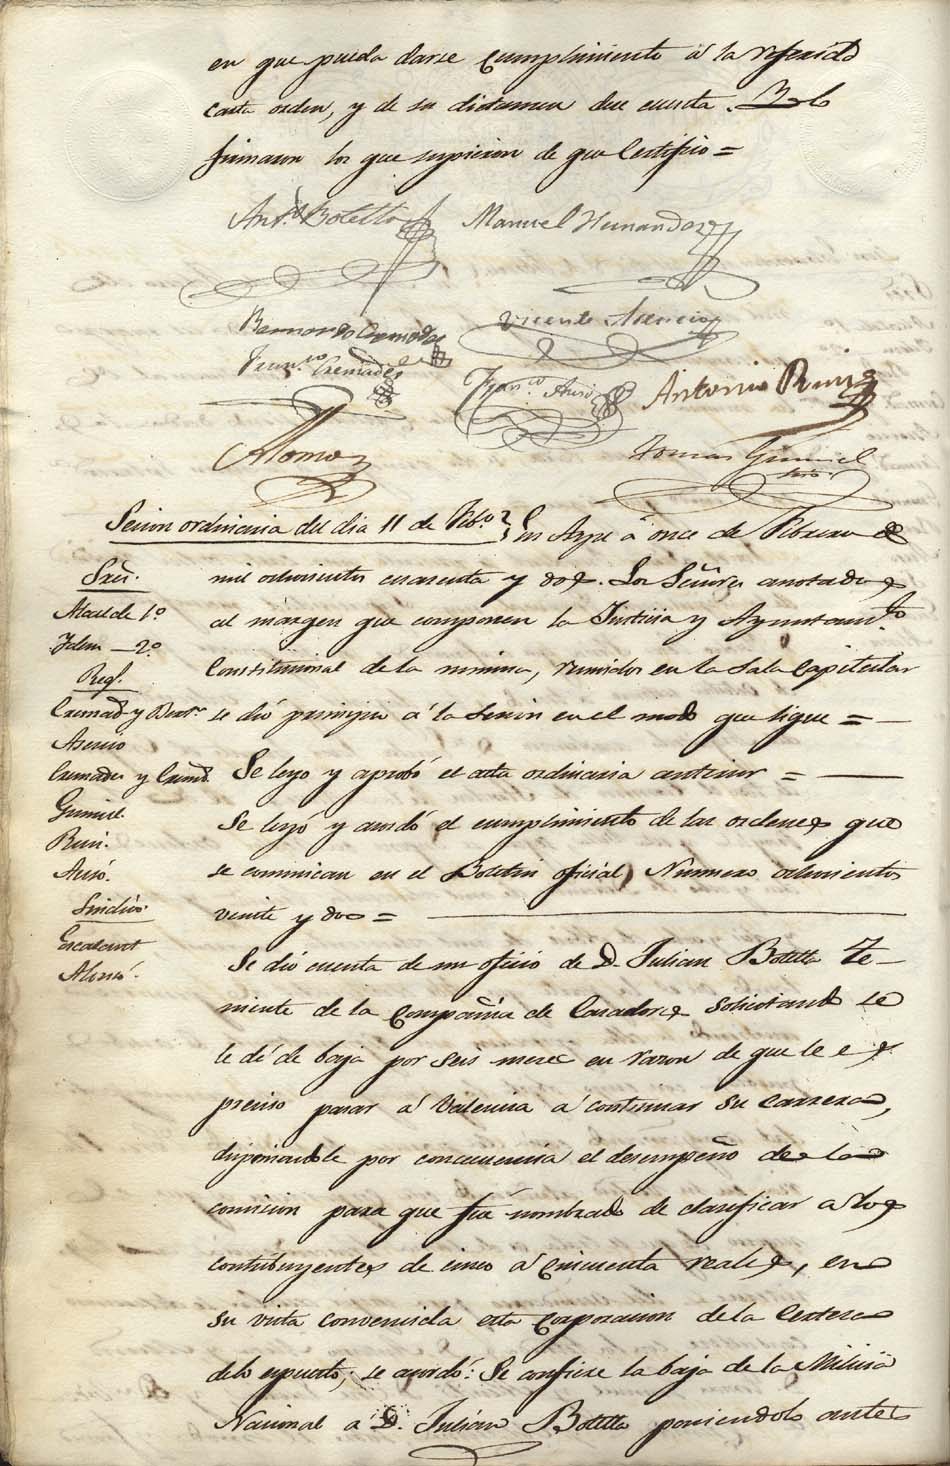 en que pueda darse cumplimiento á la referida
carta orden, y de su dictamen den cuenta. Y lo
firmaron los que supieron de que Certifico =
Antº Botella
Manuel Hernandez
Bernardo Cremades
Vicente Asencio
Franco. Cremades
Franco. Aznar
Antonio Ruiz
Alonso
Tomas Gumiel
Srio.
Secion ordinaria del dia 11 de Febo.
En Aspe á once de Febrero de
Sres.
mil ochocientos cuarenta y dos. Los Señores anotados
Alcalde 1º
al márgen que componen la Justicia y Ayuntamto.
Idem — 2º
Reg.
Constitucional de la misma, reunidos en la Sala Capitular
Cremads. y Bern.
se dió principio á la Secion en el modo que sigue =
Asencio
Cremades y Cremd.
Se leyo y aprobó el acta ordinaria anterior =
Gumiel.
Se leyó y acordó el cumplimiento de las ordenes que
Ruiz.
se comunican en el Boletin oficial Numero ochocientos
Sindicos.
veinte y dos =
Escalant
Se dió cuenta de un oficio de D. Julian Botella Te-
Alonso.
niente de la Compañia de Cazadores solicitando se
le dé de baja por seis meses en razon de que le es
preciso pasar á Valencia á continuar su carrera,
dispensandole por consecuencia el desempeño de la
comision para que fué nombrado de clasificar a los
contribuyentes de cinco á cincuenta reales, en
su vista convencida esta Corporacion de la Certeza
delo espuesto, se acordó: Se confiere la baja de la Milicia
Nacional a D. Julián Botella poniendolo antes